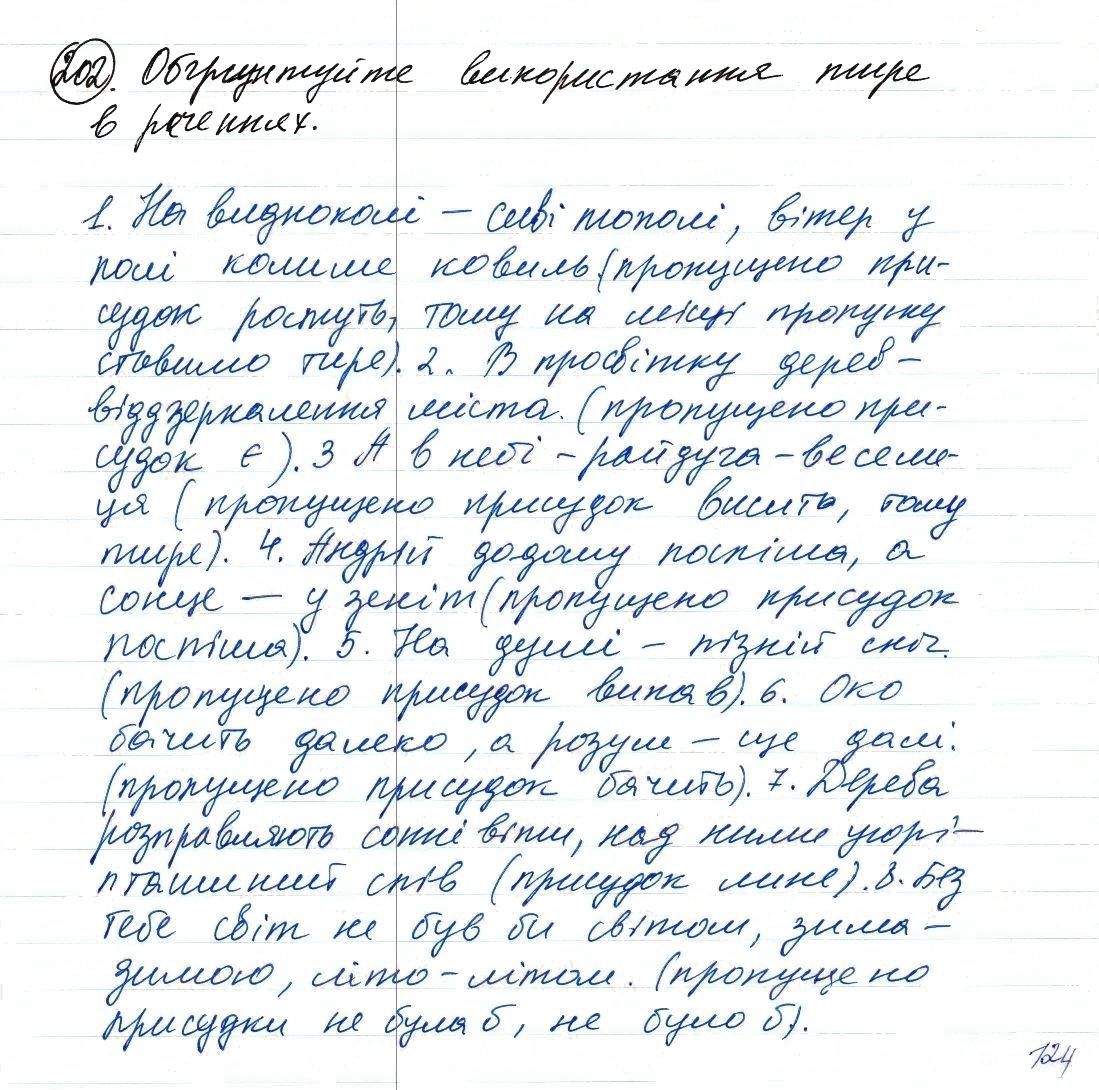 202. Обґрунтуйте використання тире
в реченнях.
1. На видноколі – сиві тополі, вітер у
полі колише ковиль (пропущено при-
судок ростуть, тому на місці пропуску
ставимо тире). 2. В просвітку дерев –
віддзеркалення міста. (пропущено при-
судок є). 3 А в небі – райдуга – весели-
ця (пропущено присудок висить, тому
тире). 4. Андрій додому поспіша, а
сонце – у зеніт (пропущено присудок
поспіша). 5. На душі – пізній сніг.
(пропущено присудок випав). 6. Око
бачить далеко, а розум – ще далі.
(пропущено присудок бачить). 7. Дерева
розправляють сонні віти, над ними угорі –
пташиний спів (присудок лине). 8. Без
тебе світ не був би світом, зима –
зимою, літо – літом. (пропущено
присудки не була б, не було б).
124